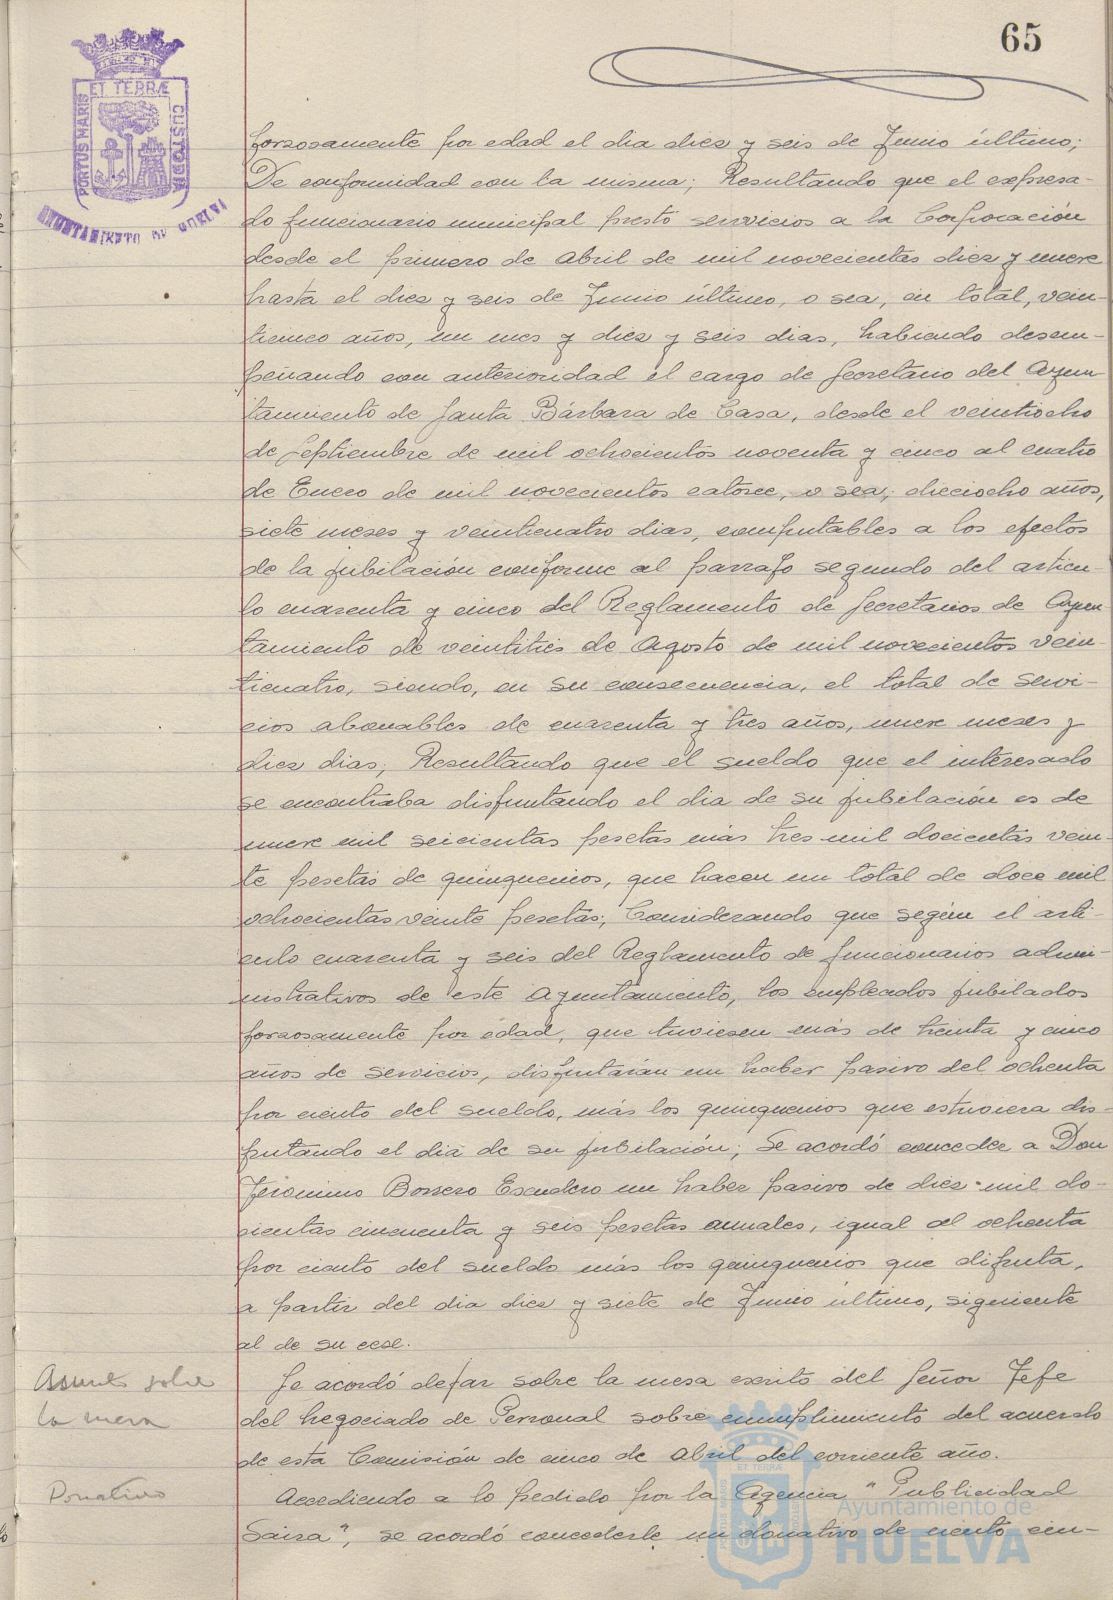 65
PORTUS MARIS ET TERRÆ CUSTODIA
AYUNTAMIENTO DE HUELVA
forzosamente por edad el dia diez y seis de Junio último;
De conformidad con la misma; Resultando que el expresa-
do funcionario municipal prestó servicios a la Corporación
desde el primero de Abril de mil novecientos diez y nueve
hasta el diez y seis de Junio último, o sea, en total, vein-
ticinco años, un mes y diez y seis dias, habiendo desem-
peñando con anterioridad el cargo de Secretario del Ayun
tamiento de Santa Bárbara de Casa, desde el veintiocho
de Septiembre de mil ochocientos noventa y cinco al cuatro
de Enero de mil novecientos catorce, o sea, dieciocho años,
siete meses y veinticuatro dias, computables a los efectos
de la jubilación conforme al parrafo segundo del articu-
lo cuarenta y cinco del Reglamento de Secretarios de Ayun
tamiento de veintitres de Agosto de mil novecientos vein-
ticuatro, siendo, en su consecuencia, el total de servi-
cios abonables de cuarenta y tres años, nueve meses y
diez dias; Resultando que el sueldo que el interesado
se encontraba disfrutando el dia de su jubilación es de
nueve mil seicientas pesetas más tres mil docientas vein-
te pesetas de quinquenios, que hacen un total de doce mil
ochocientas veinte pesetas; Considerando que según el arti-
culo cuarenta y seis del Reglamento de funcionarios admi-
nistrativos de este Ayuntamiento, los empleados jubilados
forzosamente por edad, que tuviesen más de treinta y cinco
años de servicios, disfrutarán un haber pasivo del ochenta
por ciento del sueldo, más los quinquenios que estuviera dis-
frutando el dia de su jubilación; Se acordó conceder a Don
Jerónimo Borrero Escudero un haber pasivo de diez mil do-
cientas cincuenta y seis pesetas anuales, igual al ochenta
por ciento del sueldo más los quinquenios que difruta,
a partir del dia diez y siete de Junio último, siguiente
al de su cese.
Asunto sobre
la mesa
Se acordó dejar sobre la mesa escrito del Señor Jefe
del Negociado de Personal sobre cumplimiento del acuerdo
de esta Comisión de cinco de Abril del corriente año.
Donativo
Accediendo a lo pedido por la Agencia "Publicidad
Saira", se acordó concederle un donativo de ciento cin-
Ayuntamiento de
HUELVA